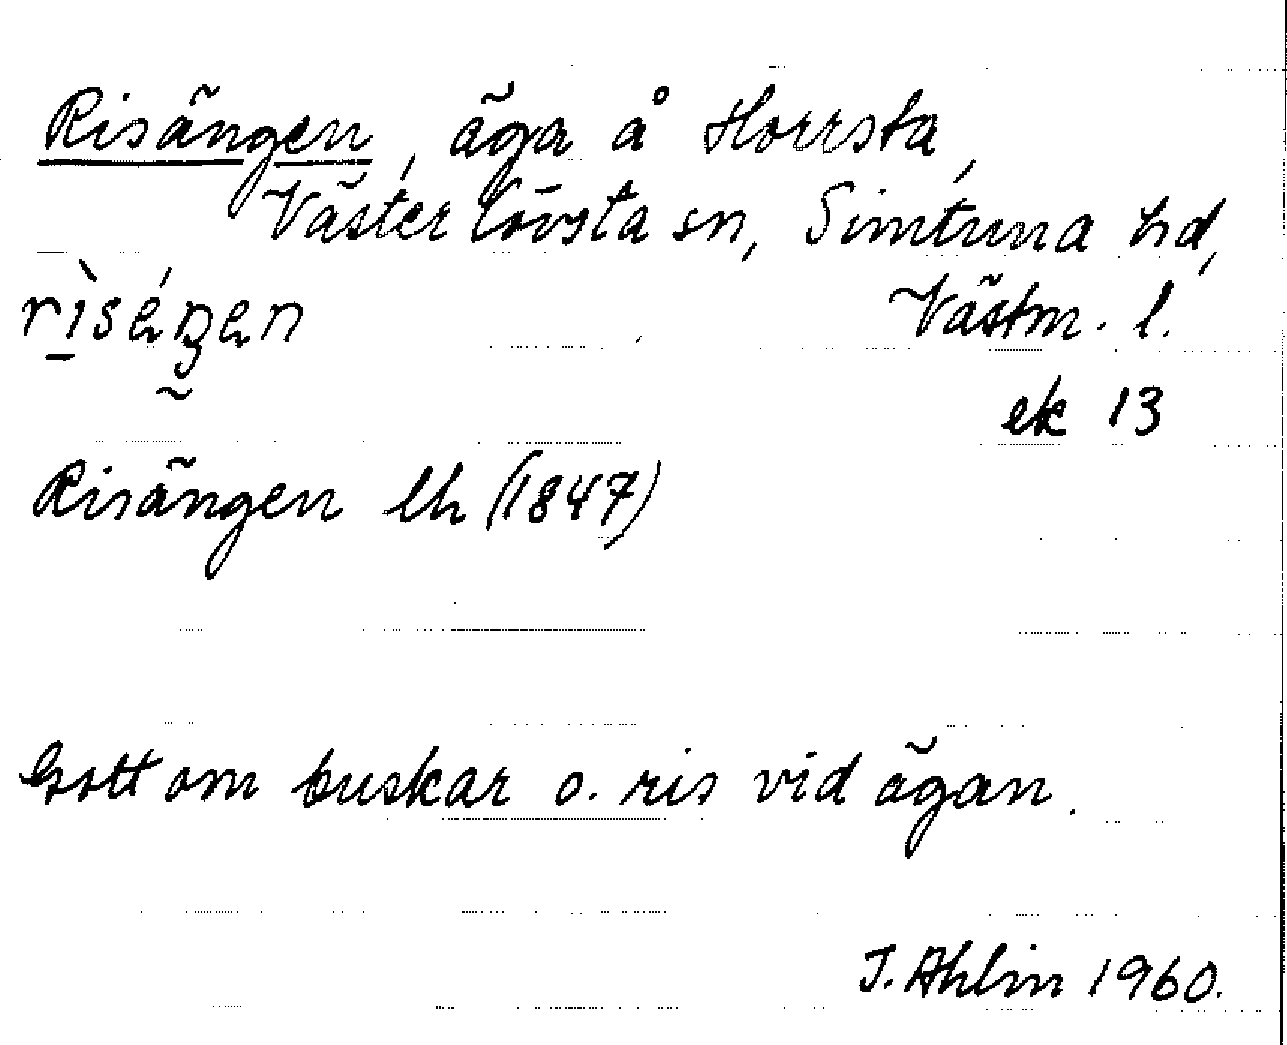 Risängen, äga å Horrsta,
Västerlövsta sn, Simtuna hd,
Västm. l.
ek 13
Risängen lh (1847)
Gott om buskar o. ris vid ägan.
J. Ahlin 1960.